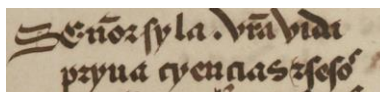 Señor sy la . vr̃a vida
pryua çyençias τ seso